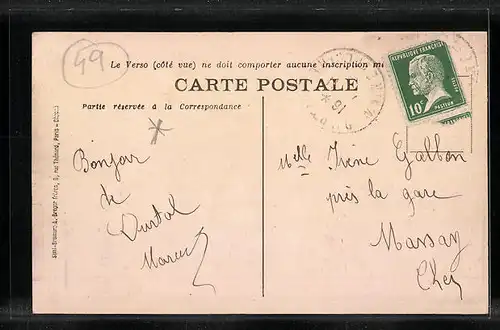 49
Le Verso (côté vue) ne doit comporter aucune inscription
CARTE POSTALE
Partie réservée à la Correspondance
RÉPUBLIQUE FRANÇAISE
10c
PASTEUR
Bonjour
de
Durtal
Marcel
Melle Irène
près la gare
Massay
Cher